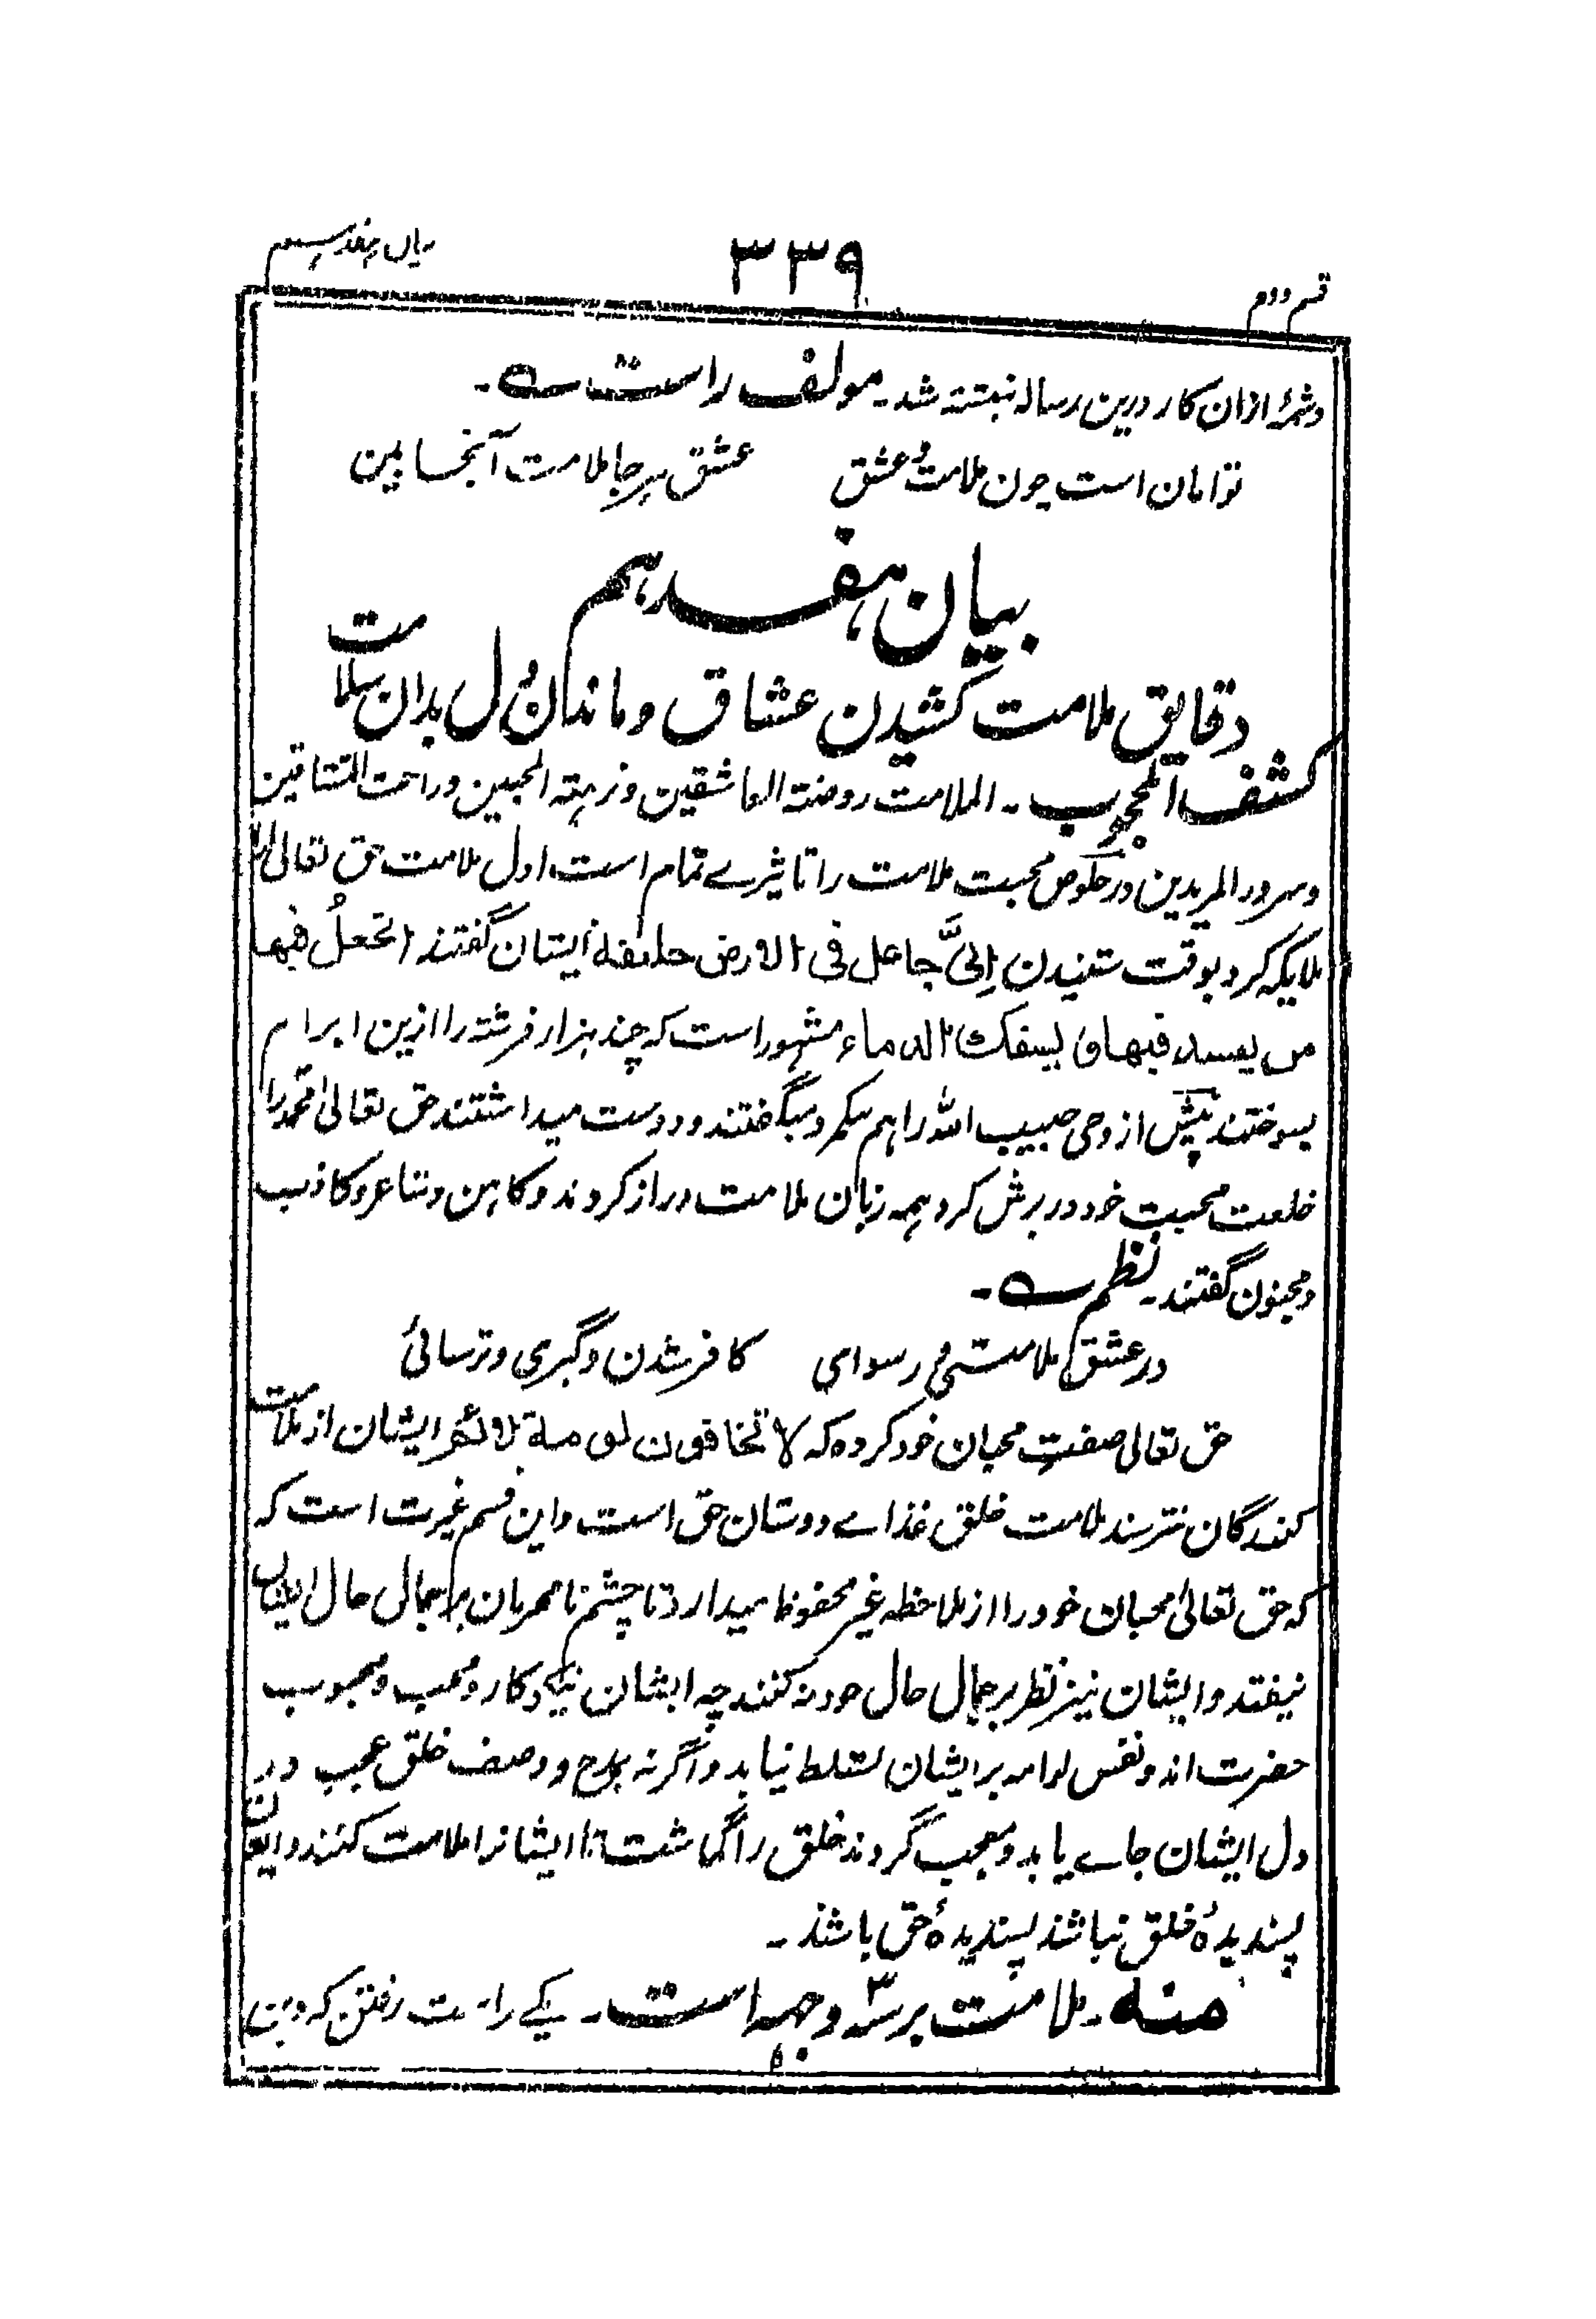 قسم دوم
۳۳۹
بیان هفدهم
وشمۂ ازان کار درین رسالہ نبشتہ شد۔ مولف راست ؎۔
توامان است چون ملامت و عشق عشق ہرجا ملامت آنجا بین
بیان ہفدہم
دقایق ملامت کشیدن عشاق و ماندن دل بدان سلامت
کشف المحجوب۔ الملامت روضتہ العاشقین و نزہتہ المحبین و راحت المشتاقین
و سرور المریدین در خلوص محبت ملامت را تاثیرے تمام است اول ملامت حق تعالیٰ را
ملایکہ کرد بوقت شنیدن اِنِّی جاعل فی الارض خلیفة ایشان گفتند اتجعلُ فیها
من یفسد فیها و یسفک الدماء مشہور است کہ چند ہزار فرشتہ را ازین ابرام
بسوختند پیش از وحی حبیب اللہ را ہم میگفتند و دوست میداشتند حق تعالیٰ محمد را
خلعت محبت خود در برش کرد ہمہ زبان ملامت دراز کردند و کاہن و شاعر و کاذب
و مجنون گفتند۔ نظم ؎۔
در عشق ملامتی و رسوای کافر شدن و گبری و ترسائی
حق تعالی صفتِ محبان خود کردہ کہ لا تخافون لومة لائم ایشان از ملامت
کنندگان نترسند ملامت خلق غذاے دوستان حق است و این قسم غیرت است کہ
کہ حق تعالیٰ محبان خود را از ملاحظہ غیر محفوظ میدارد تا چشم نامحرمان بر جمال حال ایشان
نیفتد و ایشان نیز نظر بر جمال حال خود نہ کنند چہ ایشان نیکوکار و محب و محبوب
حضرت اند و نفس لوامہ بر ایشان تسلط نیابد و اگرنہ بمدح و وصف خلق عجب در
دل ایشان جاے یابد و معجب گردند خلق را گماشت تا ایشانرا ملامت کنند و ایشان
پسندیدۂ خلق نباشد پسندیدۂ حق باشند۔
منہ۔ ملامت بر سہ وجہ است۔ یکے راست رفتن کہ دین